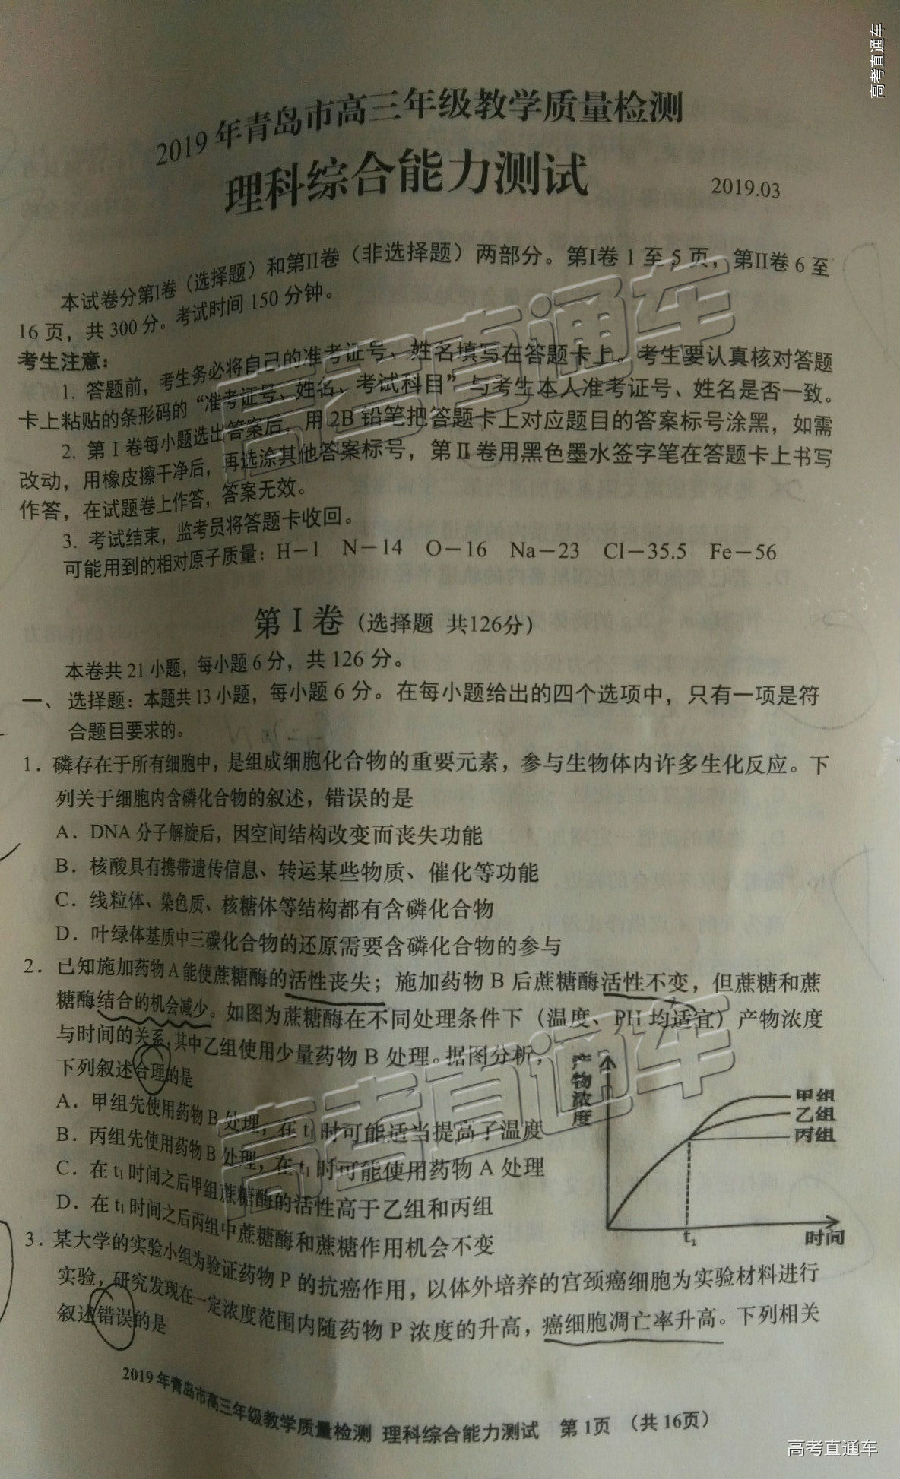 高考直通车
2019年青岛市高三年级教学质量检测
理科综合能力测试
2019.03
本试卷分第Ⅰ卷（选择题）和第Ⅱ卷（非选择题）两部分。第Ⅰ卷 1 至 5 页，第Ⅱ卷 6 至
16 页，共 300 分。考试时间 150 分钟。
考生注意：
1. 答题前，考生务必将自己的准考证号、姓名填写在答题卡上。考生要认真核对答题
卡上粘贴的条形码的“准考证号、姓名、考试科目”与考生本人准考证号、姓名是否一致。
2. 第Ⅰ卷每小题选出答案后，用 2B 铅笔把答题卡上对应题目的答案标号涂黑，如需
改动，用橡皮擦干净后，再选涂其他答案标号，第Ⅱ卷用黑色墨水签字笔在答题卡上书写
作答，在试题卷上作答，答案无效。
3. 考试结束，监考员将答题卡收回。
可能用到的相对原子质量：H－1 N－14 O－16 Na－23 Cl－35.5 Fe－56
第Ⅰ卷（选择题 共126分）
本卷共 21 小题，每小题 6 分，共 126 分。
一、选择题：本题共 13 小题，每小题 6 分。在每小题给出的四个选项中，只有一项是符
合题目要求的。
1．磷存在于所有细胞中，是组成细胞化合物的重要元素，参与生物体内许多生化反应。下
列关于细胞内含磷化合物的叙述，错误的是
A．DNA 分子解旋后，因空间结构改变而丧失功能
B．核酸具有携带遗传信息、转运某些物质、催化等功能
C．线粒体、染色质、核糖体等结构都有含磷化合物
D．叶绿体基质中三碳化合物的还原需要含磷化合物的参与
2．已知施加药物 A 能使蔗糖酶的活性丧失；施加药物 B 后蔗糖酶活性不变，但蔗糖和蔗
糖酶结合的机会减少。如图为蔗糖酶在不同处理条件下（温度、PH 均适宜）产物浓度
与时间的关系，其中乙组使用少量药物 B 处理。据图分析，
下列叙述合理的是
A．甲组先使用药物 B 处理，在 t₁ 时可能适当提高了温度
B．丙组先使用药物 B 处理，在 t₁ 时可能使用药物 A 处理
C．在 t₁ 时间之后甲组蔗糖酶的活性高于乙组和丙组
D．在 t₁ 时间之后丙组中蔗糖酶和蔗糖作用机会不变
产物浓度
甲组
乙组
丙组
t₁
时间
3．某大学的实验小组为验证药物 P 的抗癌作用，以体外培养的宫颈癌细胞为实验材料进行
实验，研究发现在一定浓度范围内随药物 P 浓度的升高，癌细胞凋亡率升高。下列相关
叙述错误的是
2019年青岛市高三年级教学质量检测 理科综合能力测试 第 1页 （共 16页）
高考直通车
高考直通车
高考直通车